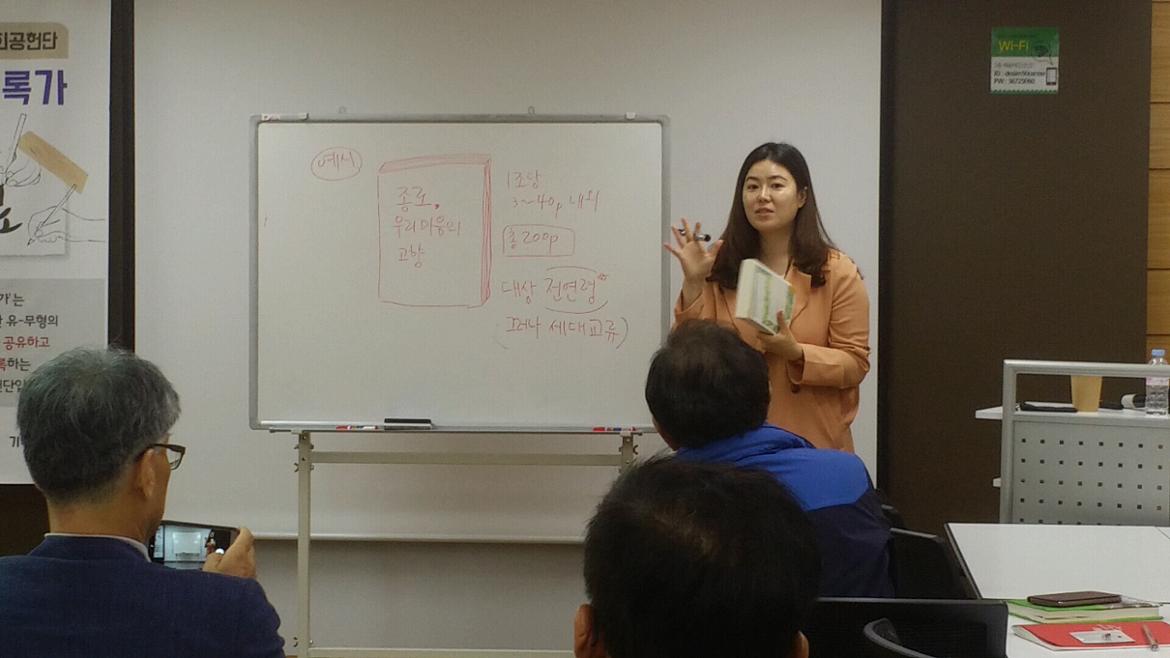 회공헌단
록가
가'는
한 유-무형의
공유하고
록하는
헌단입
기
예시
종로,
우리마음의
고향
1조당
3~40p 내외
총 200p
대상 전연령
(그러나 세대교류)
Wi-Fi